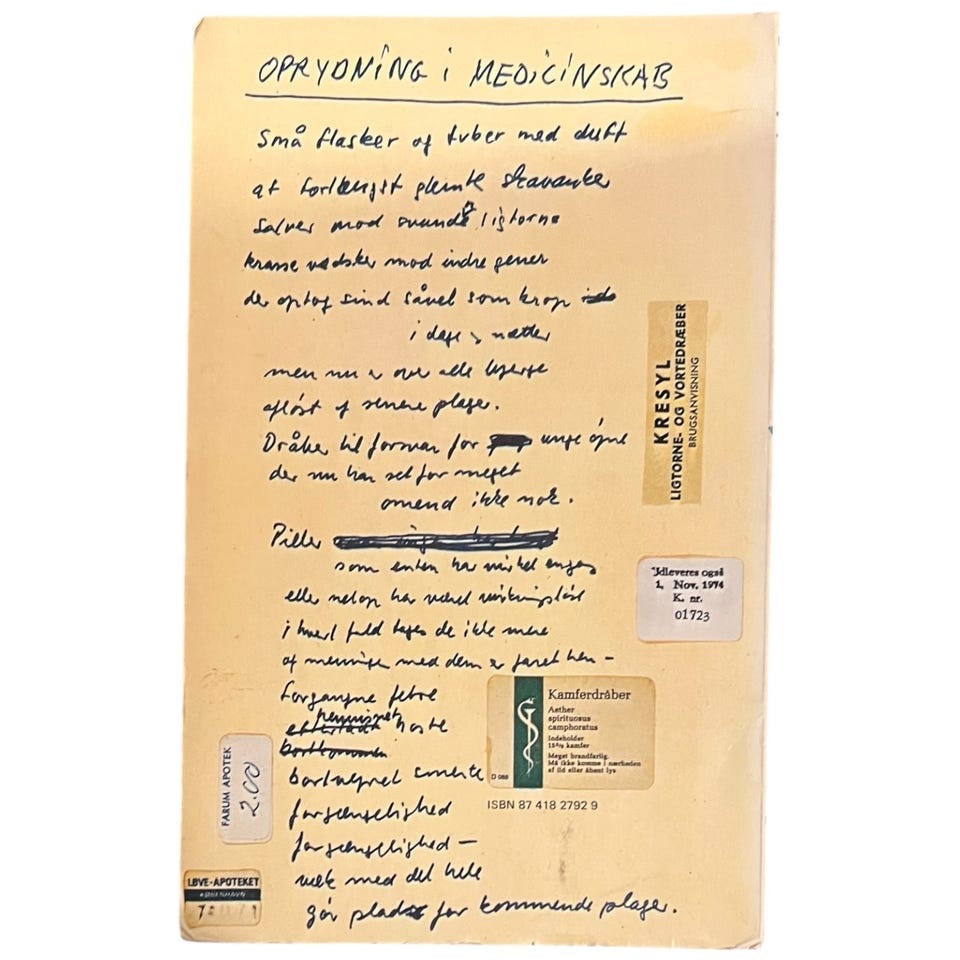 OPRYDNING i MEDICINSKAB
Små flasker og tuber med duft
af forlængst glemte skavanker
Salver mod svundne ligtorne
krasse vædsker mod indre gener
der optog sind såvel som krop
i dage og nætter
men nu er over alle bjerge
afløst af senere plager.
Dråber til formar for unge øjne
der nu har set for meget
omend ikke nok.
Piller
som enten har virket engang
eller netop har været virkningsløse
i hvert fald tages de ikke mere
og meningen med dem er faret hen –
forgangne febre
henvisnet hoste
bortvejret smerte
forgængelighed
forgængelighed –
væk med det hele
gør plads for kommende plager.
KRESYL
LIGTORNE- OG VORTEDRÆBER
BRUGSANVISNING
Udleveres også
1. Nov. 1974
K. nr.
01723
Kamferdråber
Aether
spirituosus
camphoratus
Indeholder
kamfer
Meget brandfarlig.
Må ikke komme i nærheden
af ild eller åbent lys
D 088
ISBN 87 418 2792 9
FARUM APOTEK
2.00
LØVE-APOTEKET